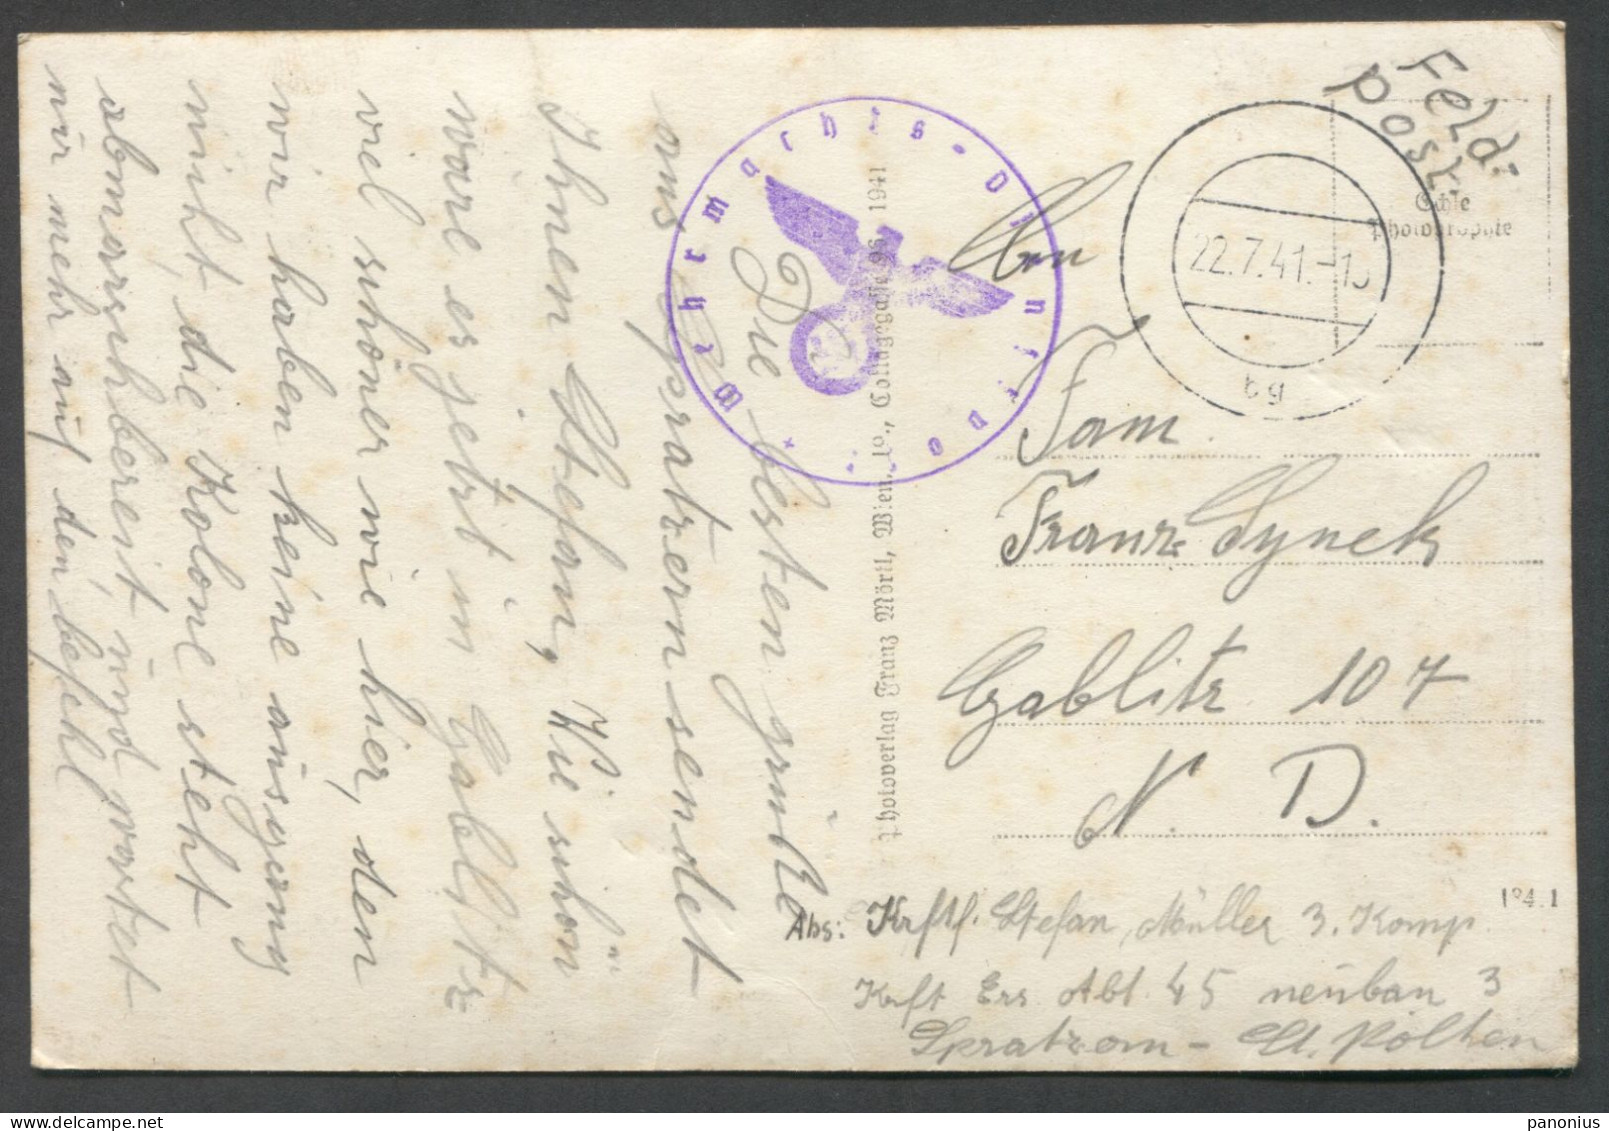 Die besten Grüße
aus Spratzern sendet
Ihnen Stefan, Wie schön
wäre es jetzt in Gablitz
viel schöner wie hier, den
wir haben keine ausgang
nicht die Kolone steht
abmarschbereit und wartet
nur mehr auf den befehl
Wehrmachts-
Photoverlag Franz Mörtl, Wien, 18., Cottagegasse 1941
Feld:
post.
Echte
Photographie
22.7.41.-
An
Fam.
Franz Synek
Gablitz 107
N. D.
184.1
Abs: Krftf. Stefan Müller 3. Komp.
Krft Ers. Abt. 45 neubau 3
Spratzern - St. Pölten
panonius